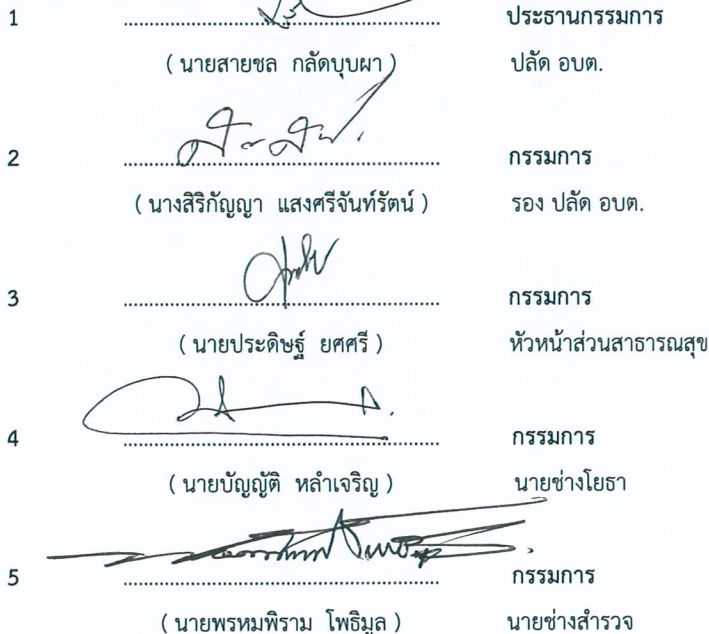 1 ........................................ ประธานกรรมการ
( นายสายชล กลัดบุบผา ) ปลัด อบต.
2 ........................................ กรรมการ
( นางสิริกัญญา แสงศรีจันท์รัตน์ ) รอง ปลัด อบต.
3 ........................................ กรรมการ
( นายประดิษฐ์ ยศศรี ) หัวหน้าส่วนสาธารณสุข
4 ........................................ กรรมการ
( นายบัญญัติ หลำเจริญ ) นายช่างโยธา
5 ........................................ กรรมการ
( นายพรหมพิราม โพธิมูล ) นายช่างสำรวจ